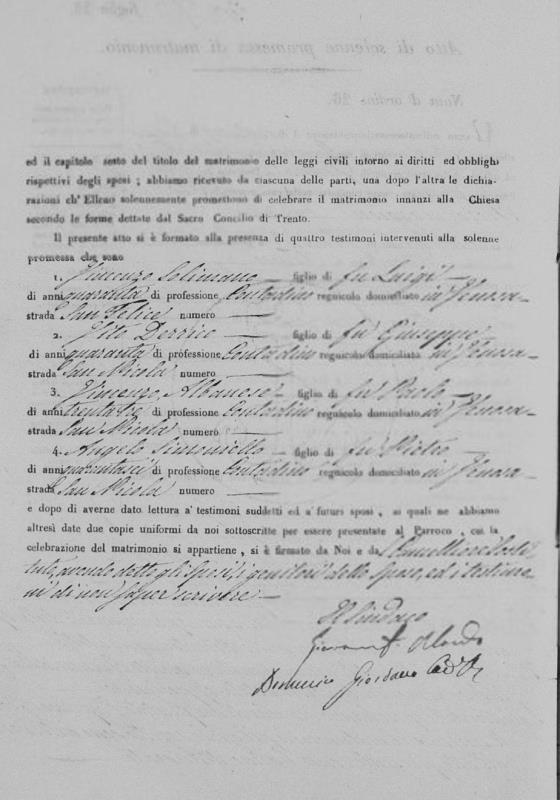 ed il capitolo sesto del titolo del matrimonio delle leggi civili intorno ai diritti ed obblighi
rispettivi degli sposi ; abbiamo ricevuto da ciascuna delle parti, una dopo l'altra le dichia-
razioni ch' Elleno solennemente promettono di celebrare il matrimonio innanzi alla Chiesa
secondo le forme dettate dal Sacro Concilio di Trento.
Il presente atto si è formato alla presenza di quattro testimoni intervenuti alla solenne
promessa che sono
1. Vincenzo Solimano figlio di fu Luigi
di anni quaranta di professione Contadino regnicolo domiciliato in Venosa
strada San Felice numero
2. Vito Derrico figlio di fu Giuseppe
di anni quaranta di professione Contadino regnicolo domiciliato in Venosa
strada San Nicola numero
3. Vincenzo Albanese figlio di fu Paolo
di anni trentatre di professione Contadino regnicolo domiciliato in Venosa
strada San Nicola numero
4. Angelo Simoniello figlio di fu Pietro
di anni quarantasei di professione Contadino regnicolo domiciliato in Venosa
strada San Nicola numero
e dopo di averne dato lettura a' testimoni suddetti ed a' futuri sposi , ai quali ne abbiamo
altresì date due copie uniformi da noi sottoscritte per essere presentate al Parroco , cui la
celebrazione del matrimonio si appartiene , si è firmato da Noi e da Cancelliere sosti
tuto, avendo detto gli Sposi, i genitori dello Sposo, ed i testimo
ni di non saper scrivere
Il Sindaco
Orlando
Domenico Giordano